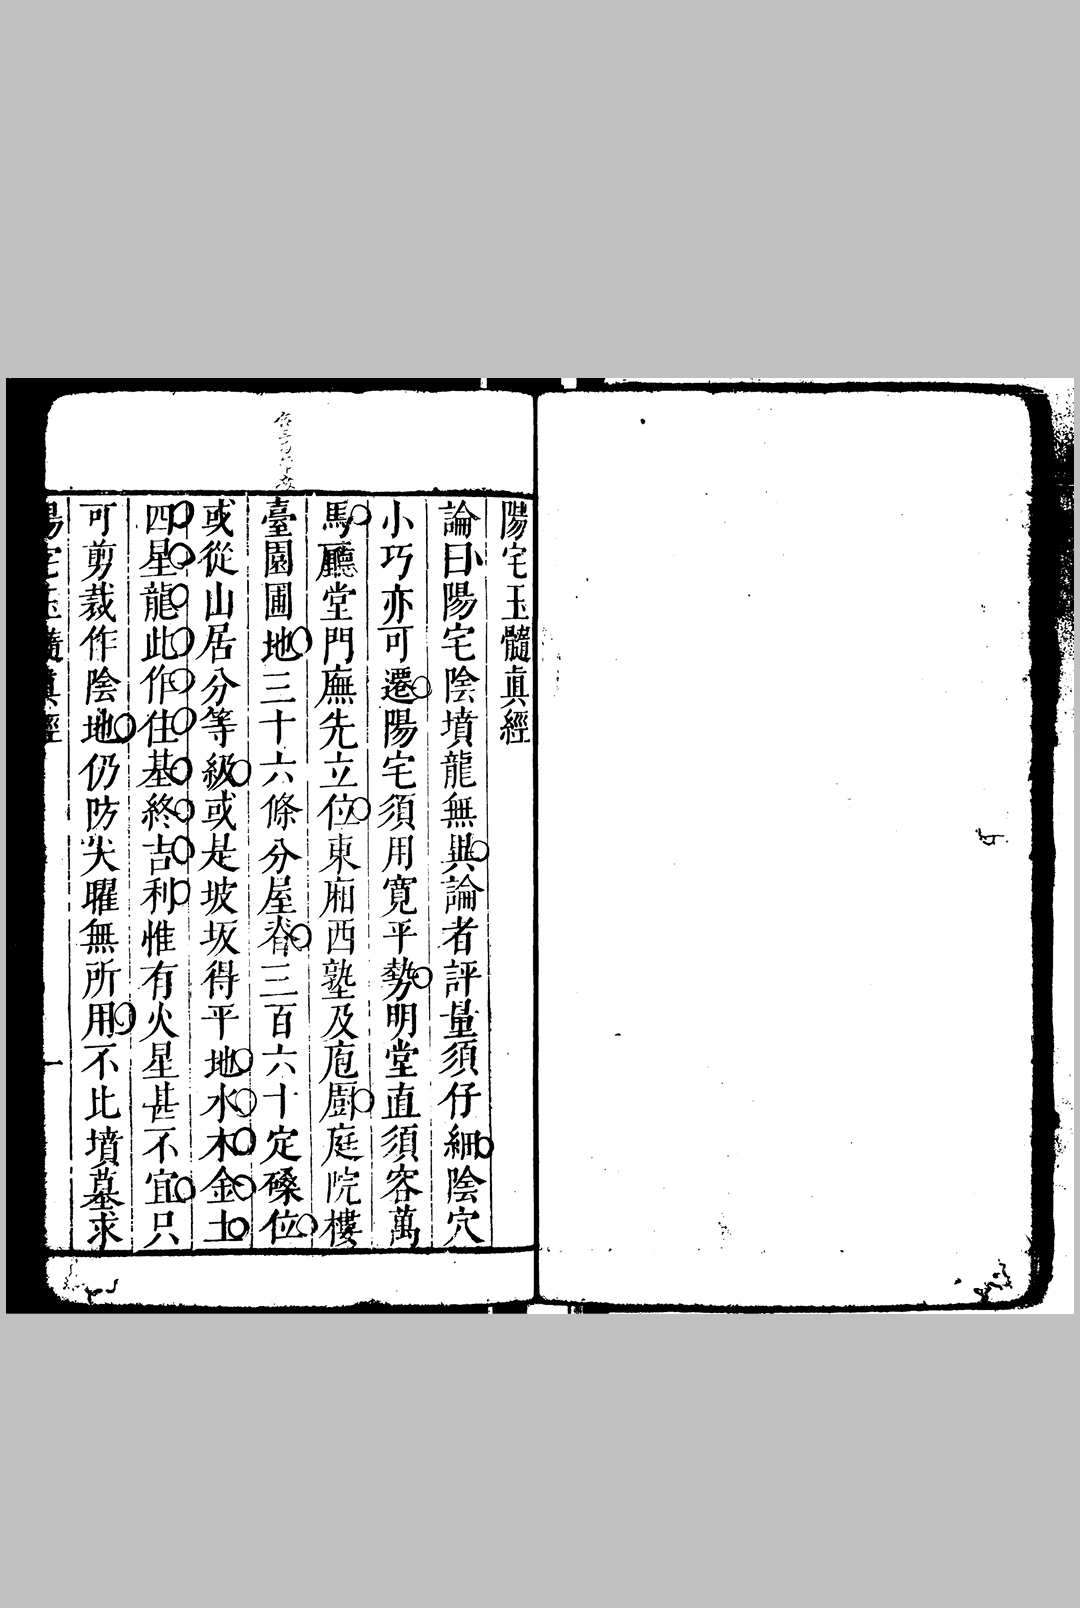 陽宅玉髓眞經
論曰陽宅陰墳龍無異論者評量須仔細陰穴
小巧亦可遷陽宅須用寬平勢明堂直須容萬
馬廳堂門廡先立位東廂西塾及庖廚庭院樓
臺園圃地三十六條分屋脊三百六十定磉位
或從山居分等級或是坡坂得平地水木金土
四星龍此作住基終吉利惟有火星甚不宜只
可剪裁作陰地仍防尖曜無所用不比墳墓求
陽宅玉髓眞經 一